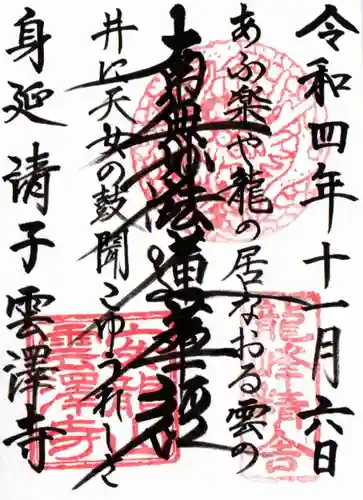 令和四年十一月六日
あふ楽や龍の居なおる雲の
南無妙法蓮華経
井に天女の鼓聞こゆうれしさ
身延 請子 雲澤寺
龍峰精舎
安龍山
雲澤寺